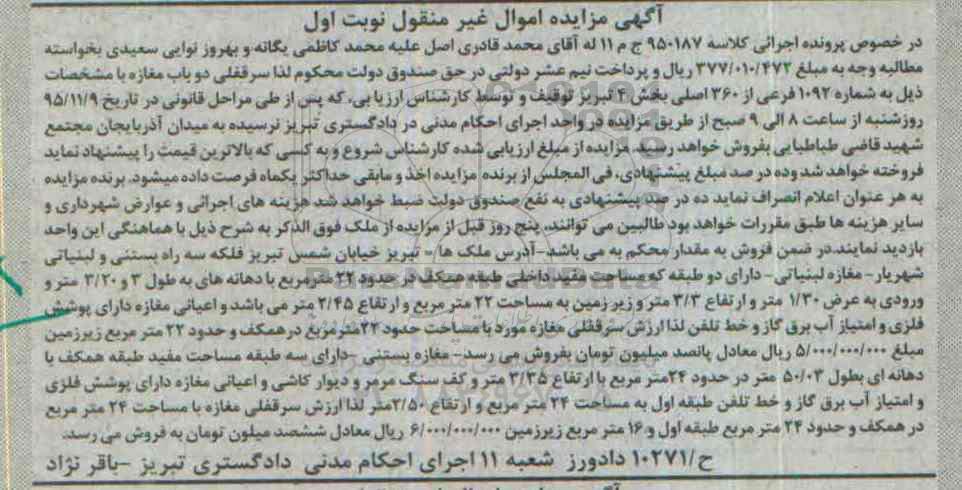 آگهی مزایده اموال غیر منقول نوبت اول
در خصوص پرونده اجرائی کلاسه ۹۵۰۱۸۷ ج م ۱۱ له آقای محمد قادری اصل علیه محمد کاظمی یگانه و بهروز نوایی سعیدی بخواسته
مطالبه وجه به مبلغ ۳۷۷/۰۱۰/۴۷۲ ریال و پرداخت نیم عشر دولتی در حق صندوق دولت محکوم لذا سرقفلی دو باب مغازه با مشخصات
ذیل به شماره ۱۰۹۲ فرعی از ۳۶۰ اصلی بخش ۴ تبریز توقیف و توسط کارشناس ارزیابی، که پس از طی مراحل قانونی در تاریخ ۹۵/۱۱/۹
روزشنبه از ساعت ۸ الی ۹ صبح از طریق مزایده در واحد اجرای احکام مدنی در دادگستری تبریز نرسیده به میدان آذربایجان مجتمع
شهید قاضی طباطبایی بفروش خواهد رسید. مزایده از مبلغ ارزیابی شده کارشناس شروع و به کسی که بالاترین قیمت را پیشنهاد نماید
فروخته خواهد شد وده در صد مبلغ پیشنهادی، فی المجلس از برنده مزایده اخذ و مابقی حداکثر یکماه فرصت داده میشود. برنده مزایده
به هر عنوان اعلام انصراف نماید ده در صد پیشنهادی به نفع صندوق دولت ضبط خواهد شد هزینه های اجرائی و عوارض شهرداری و
سایر هزینه ها طبق مقررات خواهد بود طالبین می توانند، پنج روز قبل از مزایده از ملک فوق الذکر به شرح ذیل با هماهنگی این واحد
بازدید نمایند.در ضمن فروش به مقدار محکم به می باشد-آدرس ملک ها- تبریز خیابان شمس تبریز فلکه سه راه بستنی و لبنیاتی
شهریار- مغازه لبنیاتی- دارای دو طبقه که مساحت مفید داخلی طبقه همکف در حدود ۲۲ مترمربع با دهانه های به طول ۳ و ۳/۲۰ متر و
ورودی به عرض ۱/۳۰ متر و ارتفاع ۳/۳ متر و زیر زمین به مساحت ۲۲ متر مربع و ارتفاع ۲/۴۵ متر می باشد و اعیانی مغازه دارای پوشش
فلزی و امتیاز آب برق گاز و خط تلفن لذا ارزش سرقفلی مغازه مورد با مساحت حدود ۲۲مترمربع در همکف و حدود ۲۲ متر مربع زیرزمین
مبلغ ۵/۰۰۰/۰۰۰/۰۰۰ ریال معادل پانصد میلیون تومان بفروش می رسد- مغازه بستنی -دارای سه طبقه مساحت مفید طبقه همکف با
دهانه ای بطول ۵۰/۰۳ متر در حدود ۲۴متر مربع با ارتفاع ۳/۳۵ متر و کف سنگ مرمر و دیوار کاشی و اعیانی مغازه دارای پوشش فلزی
و امتیاز آب برق گاز و خط تلفن طبقه اول به مساحت ۲۴ متر مربع و ارتفاع ۲/۵۰متر لذا ارزش سرقفلی مغازه با مساحت ۲۴ متر مربع
در همکف و حدود ۲۴ متر مربع طبقه اول و ۱۶ متر مربع زیرزمین ۶/۰۰۰/۰۰۰/۰۰۰ ریال معادل ششصد میلون تومان به فروش می رسد.
ح/۱۰۲۷۱ دادورز شعبه ۱۱ اجرای احکام مدنی دادگستری تبریز -باقر نژاد